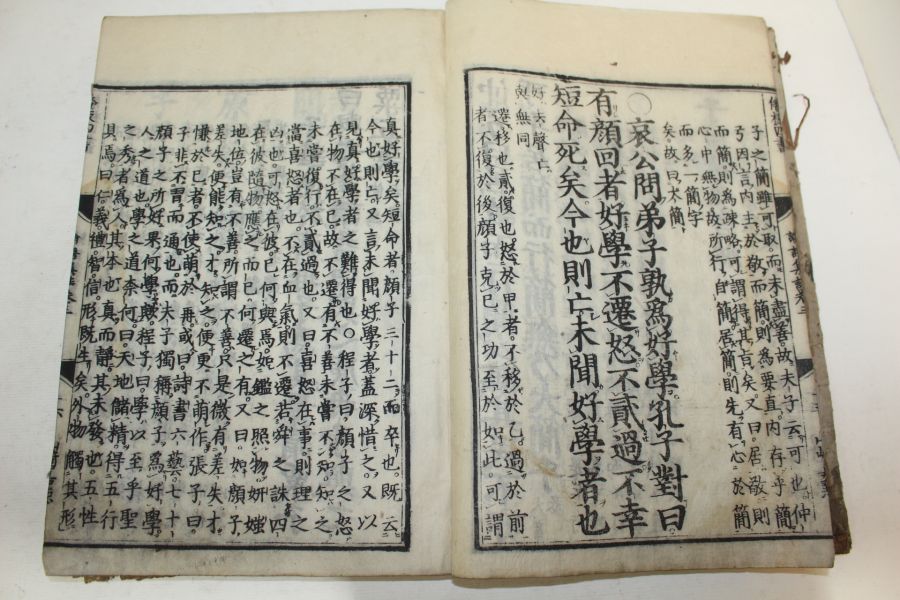 子之簡雖可取而未盡善故夫子云可也仲
弓因言內主於敬而簡則為要直內存乎簡
而簡則為疎略可謂得其旨矣又曰居敬則
心中無物故所行自簡居簡則先有心於簡
而多一簡字
矣故曰太簡
○哀公問弟子孰為好學孔子對曰
有顏回者好學不遷怒不貳過不幸
短命死矣今也則亡未聞好學者也
好去聲亡
與無同
遷移也貳復也怒於甲者不移於乙過於前
者不復於後顏子克己之功至於如此可謂
真好學矣短命者顏子三十二而卒也既云
今也則亡又言未聞好學者蓋深惜之又以
見真好學者之難得也○程子曰顏子之怒
在物不在己故不遷有不善未嘗不知知之
未嘗復行不貳過也又曰喜怒在事則理之
當喜怒者也不在血氣則不遷若舜之誅四
凶也可怒在彼己何與焉如鑑之照物妍媸
在彼隨物應之而已何遷之有又曰如顏子
地位豈有不善所謂不善只是微有差失才
差失便能知之才知之便更不萌作張子曰
慊於己者不使萌於再或曰詩書六藝七十
子非不習而通也而夫子獨稱顏子為好學
顏子之所好果何學歟程子曰學以至乎聖
人之道也學之道奈何曰天地儲精得五行
之秀者為人其本也真而靜其未發也五性
具焉曰仁義禮智信形既生矣外物觸其形